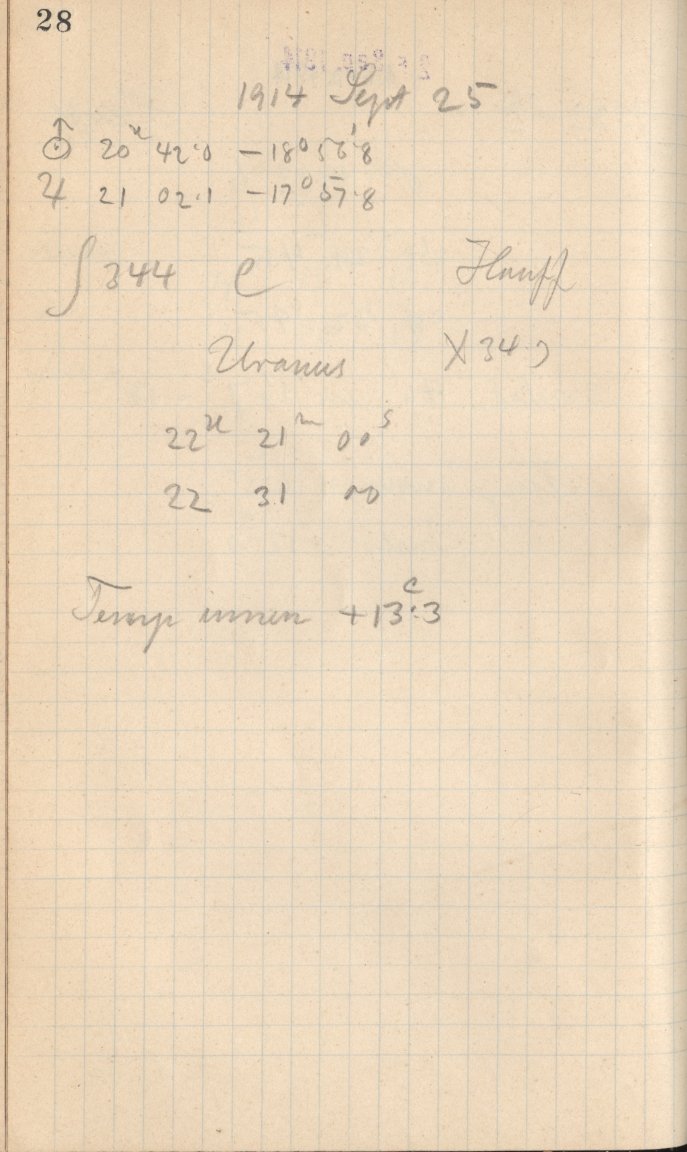 28
1914 Sept 25
⛢ 20ʰ 42·0 −18° 56'·8
♃ 21 02·1 −17° 57·8
∫344 C Hauff
Uranus X34
22ʰ 21ᵐ 00ˢ
22 31 00
Temp innen +13ᶜ·3